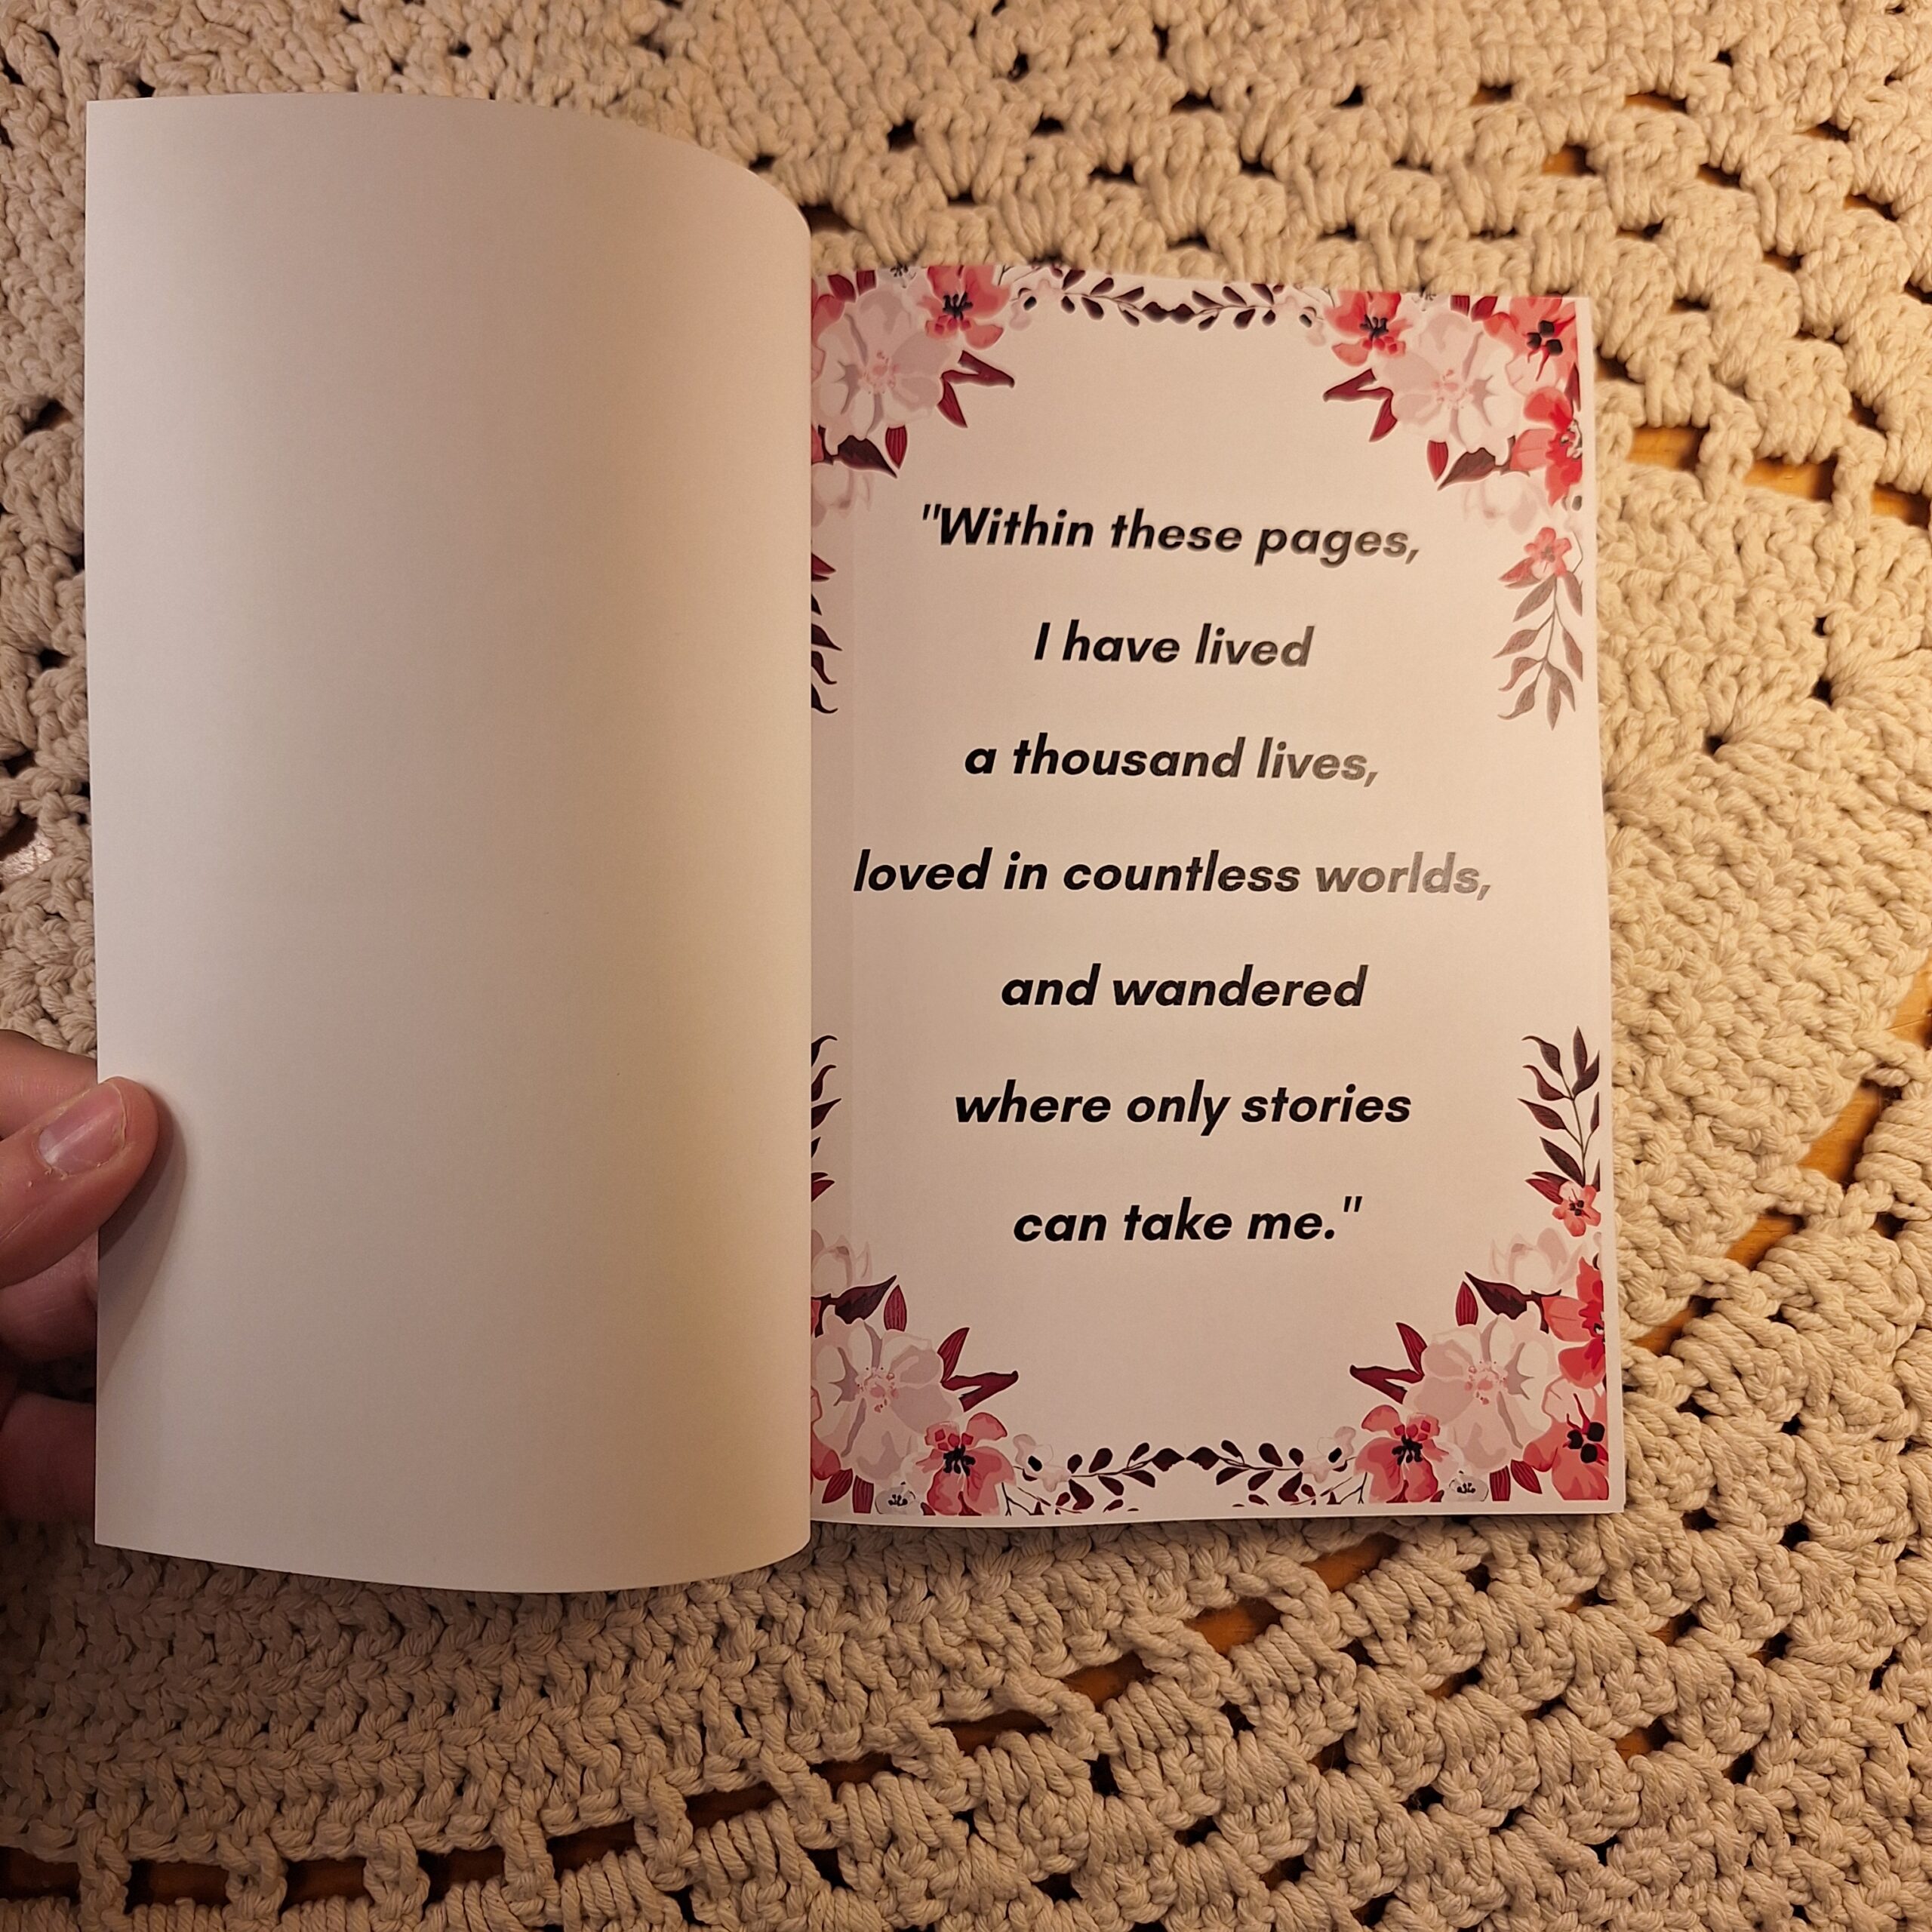 "Within these pages,
I have lived
a thousand lives,
loved in countless worlds,
and wandered
where only stories
can take me."